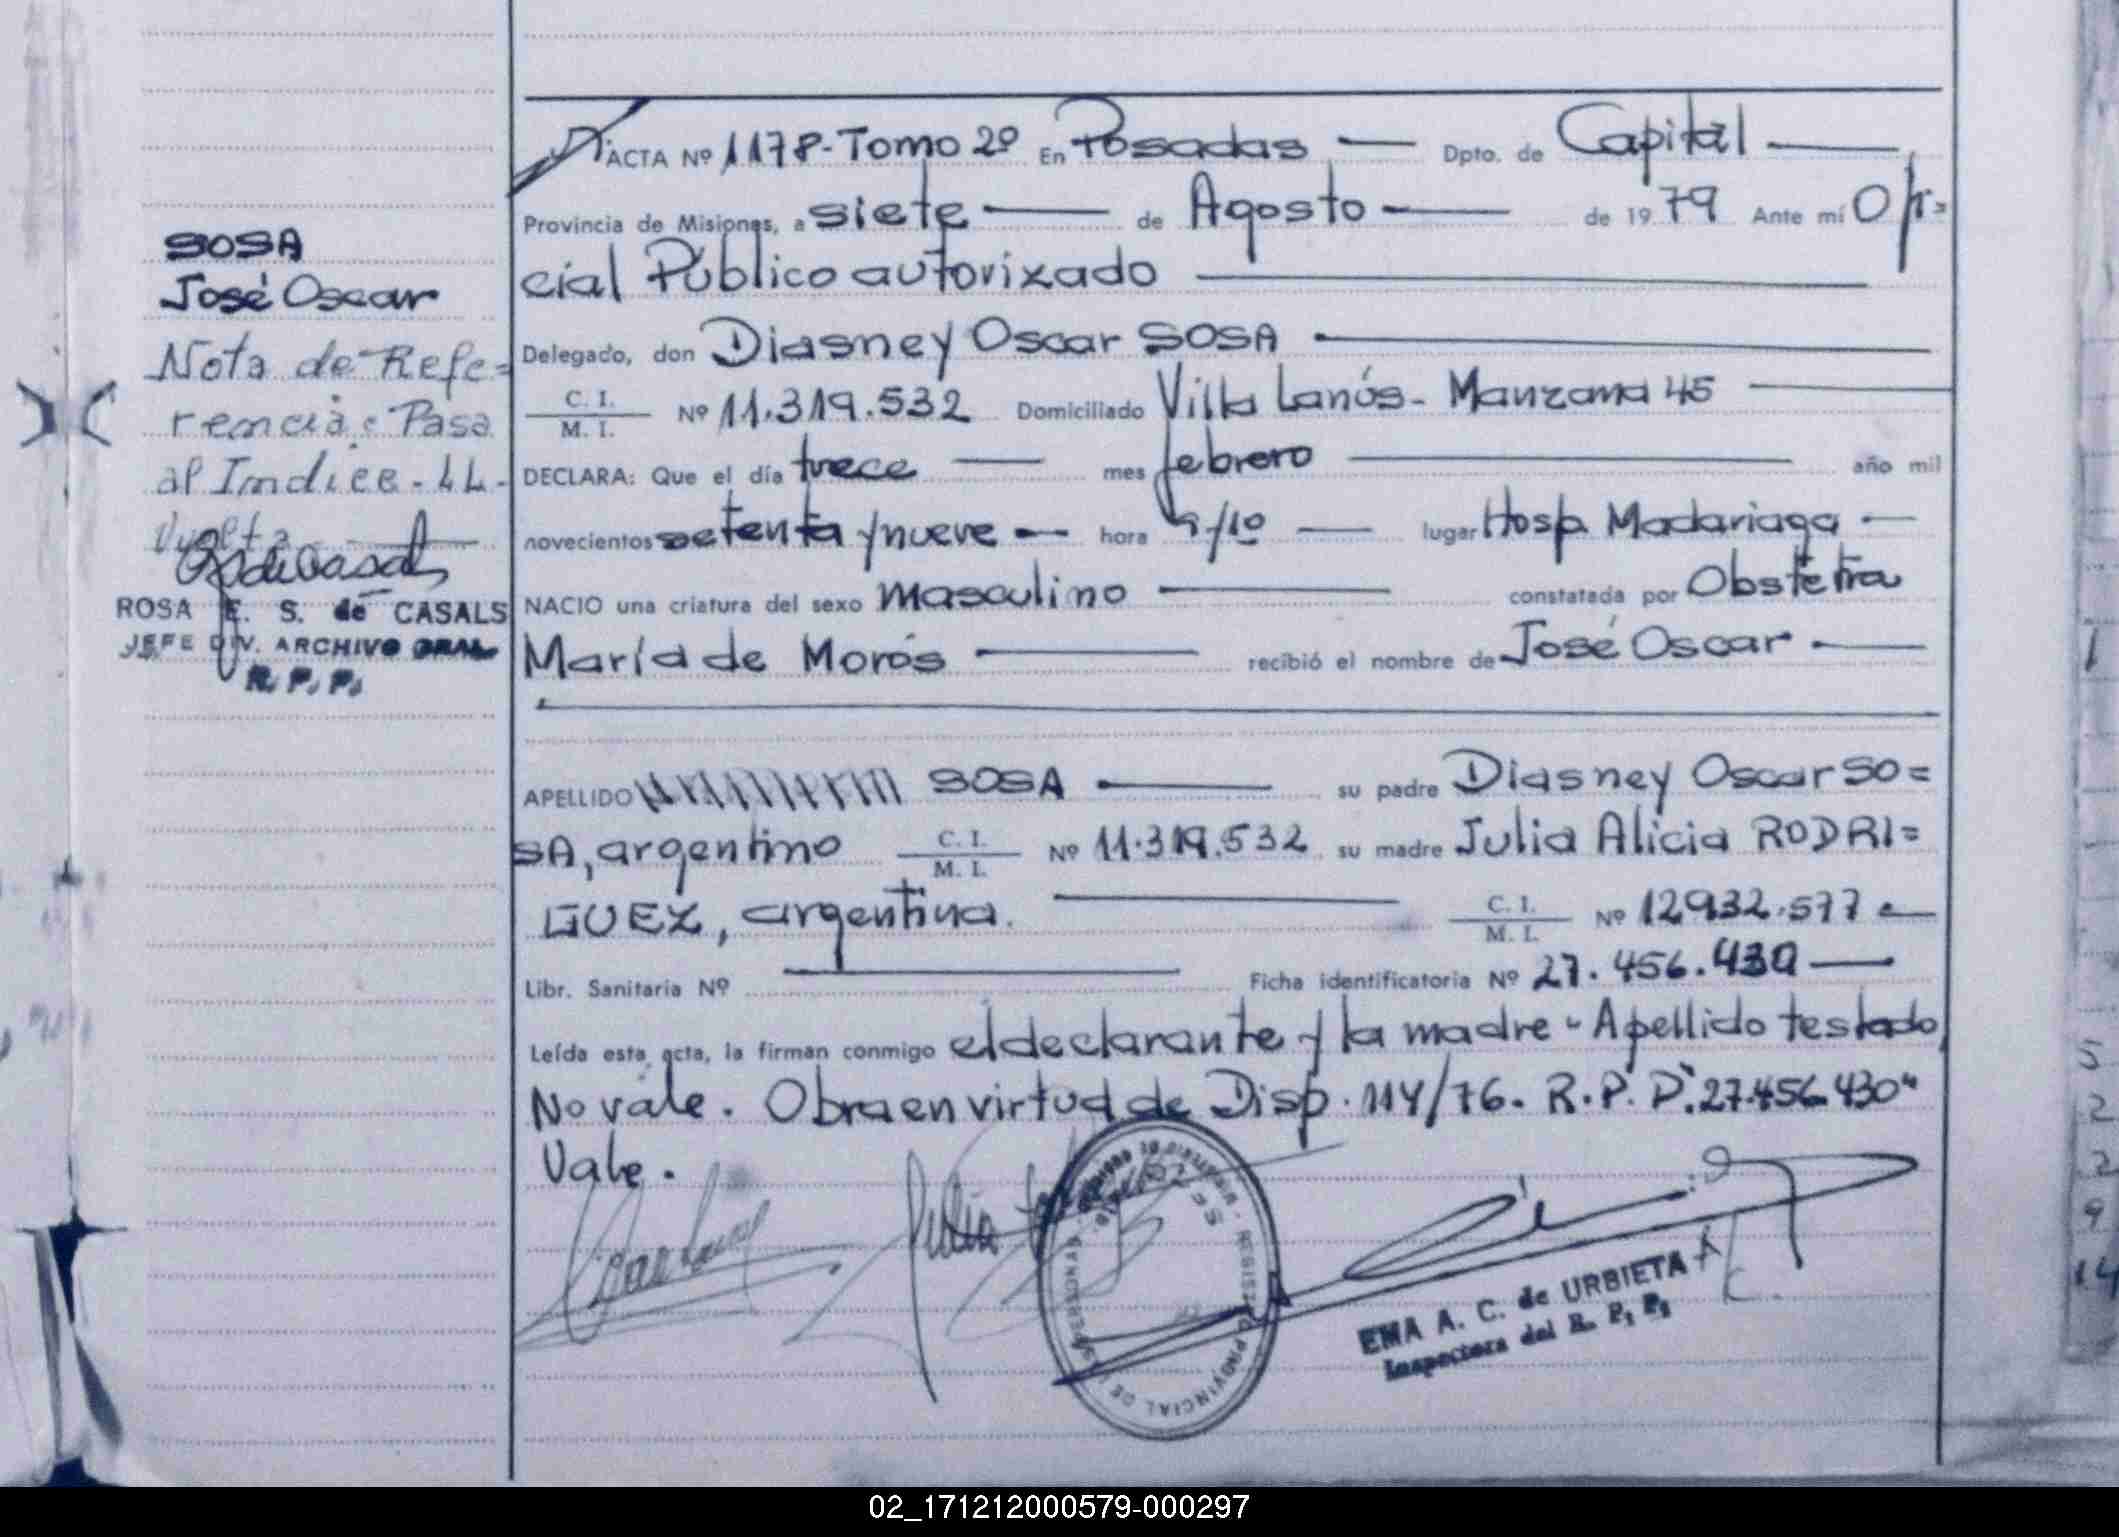 ACTA Nº 1178-Tomo 2º En Posadas Dpto. de Capital
Provincia de Misiones, a siete de Agosto de 1979 Ante mí Ofi=
cial Público autorizado
Delegado, don Diasney Oscar SOSA
C. I.
M. I.
Nº 11.319.532 Domiciliado Villa Lanús - Manzana 45
DECLARA: Que el día trece mes febrero año mil
novecientos setenta y nueve hora lugar Hosp. Madariaga
NACIO una criatura del sexo masculino constatada por Obstetra
María de Morós recibió el nombre de José Oscar
APELLIDO SOSA su padre Diasney Oscar SO=
SA, argentino C. I. M. I. Nº 11.319.532 su madre Julia Alicia RODRI=
GUEZ, argentina. C. I. M. I. Nº 12932.577
Libr. Sanitaria Nº Ficha identificatoria Nº 27.456.430
Leída esta acta, la firman conmigo el declarante y la madre - Apellido testado
No vale. Obra en virtud de Disp. 114/76. R.P.P. "27.456.430"
Vale.
EMA A. C. de URBIETA
Inspectora del R. P. P.
REGISTRO PROVINCIAL DE LAS PERSONAS
SOSA
José Oscar
Nota de Refe=
rencia: Pasa
al Indice - LL -
Vuelta
ROSA E. S. de CASALS
JEFE DIV. ARCHIVO GRAL
R. P. P.
1
5
2
2
9
14
02_171212000579-000297